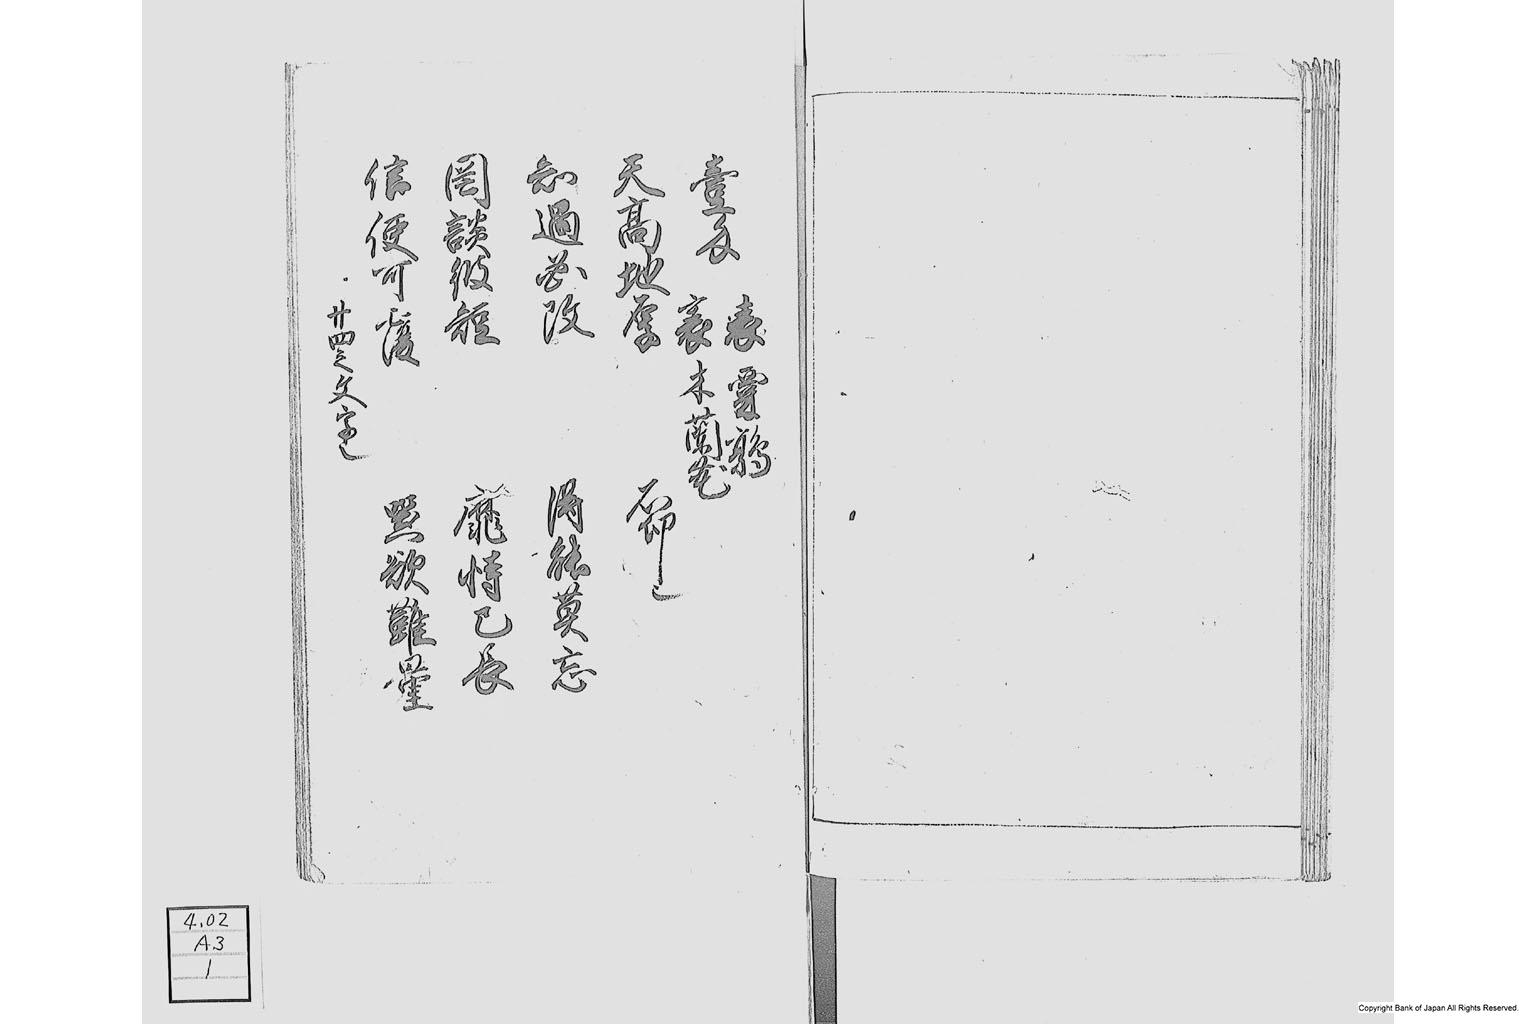 表 鶴
裏 木蘭花
天高地厚
知過必改 得能莫忘
罔談彼短 靡恃己長
信使可覆 器欲難量
廿四之文字也
4.02
A3
1
Copyright Bank of Japan All Rights Reserved.